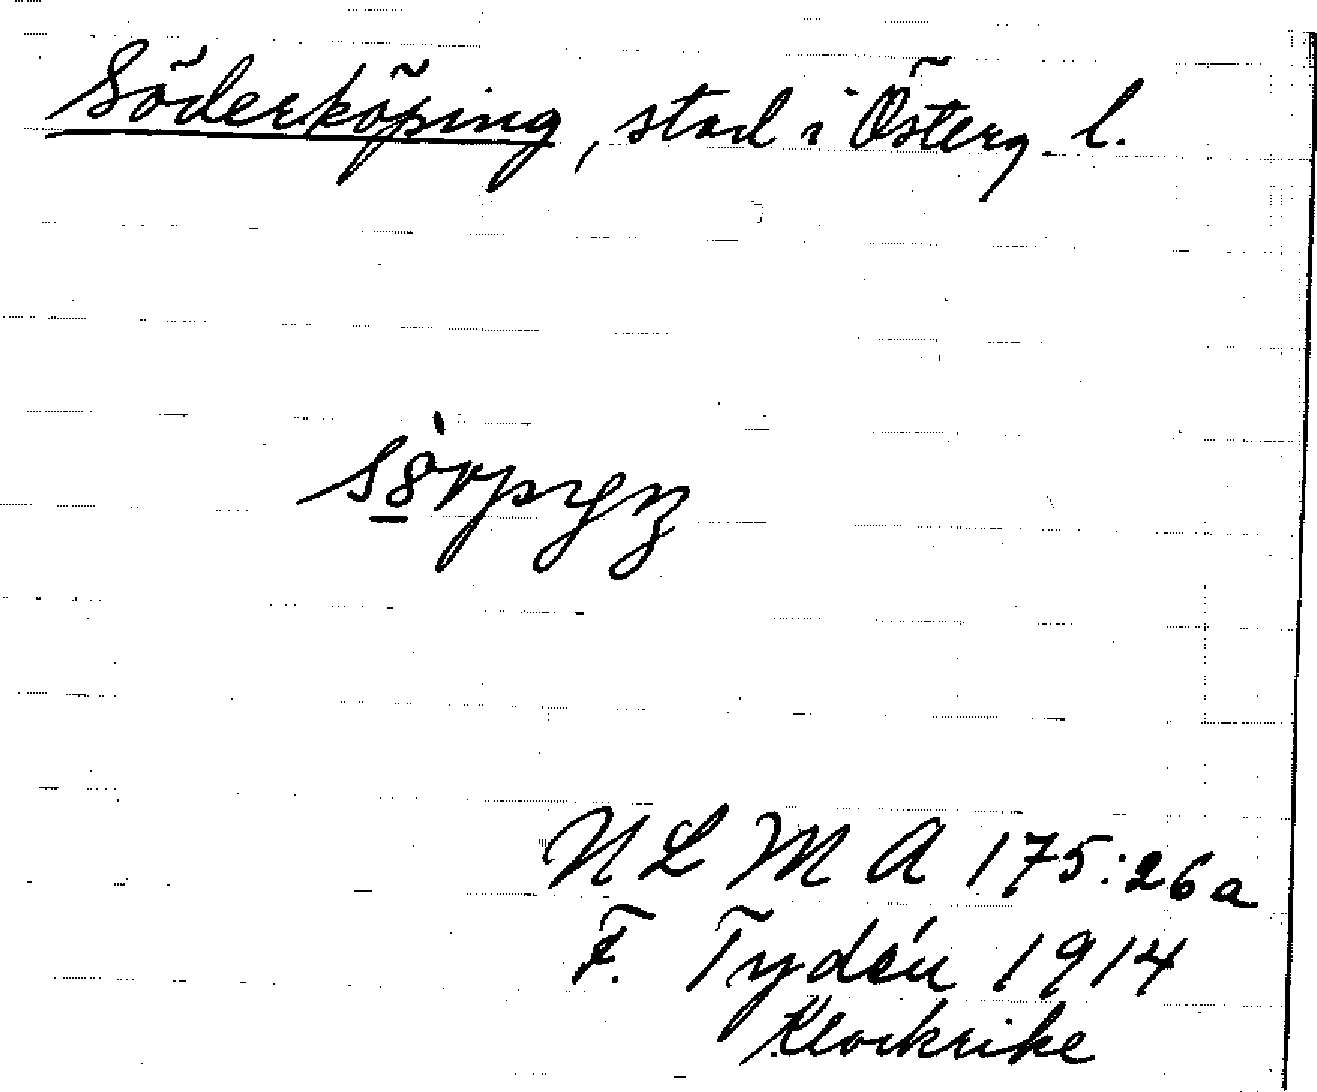 Söderköping, stad i Österg. l.
N L M A 175:26a
F. Tydén 1914
Klockrike